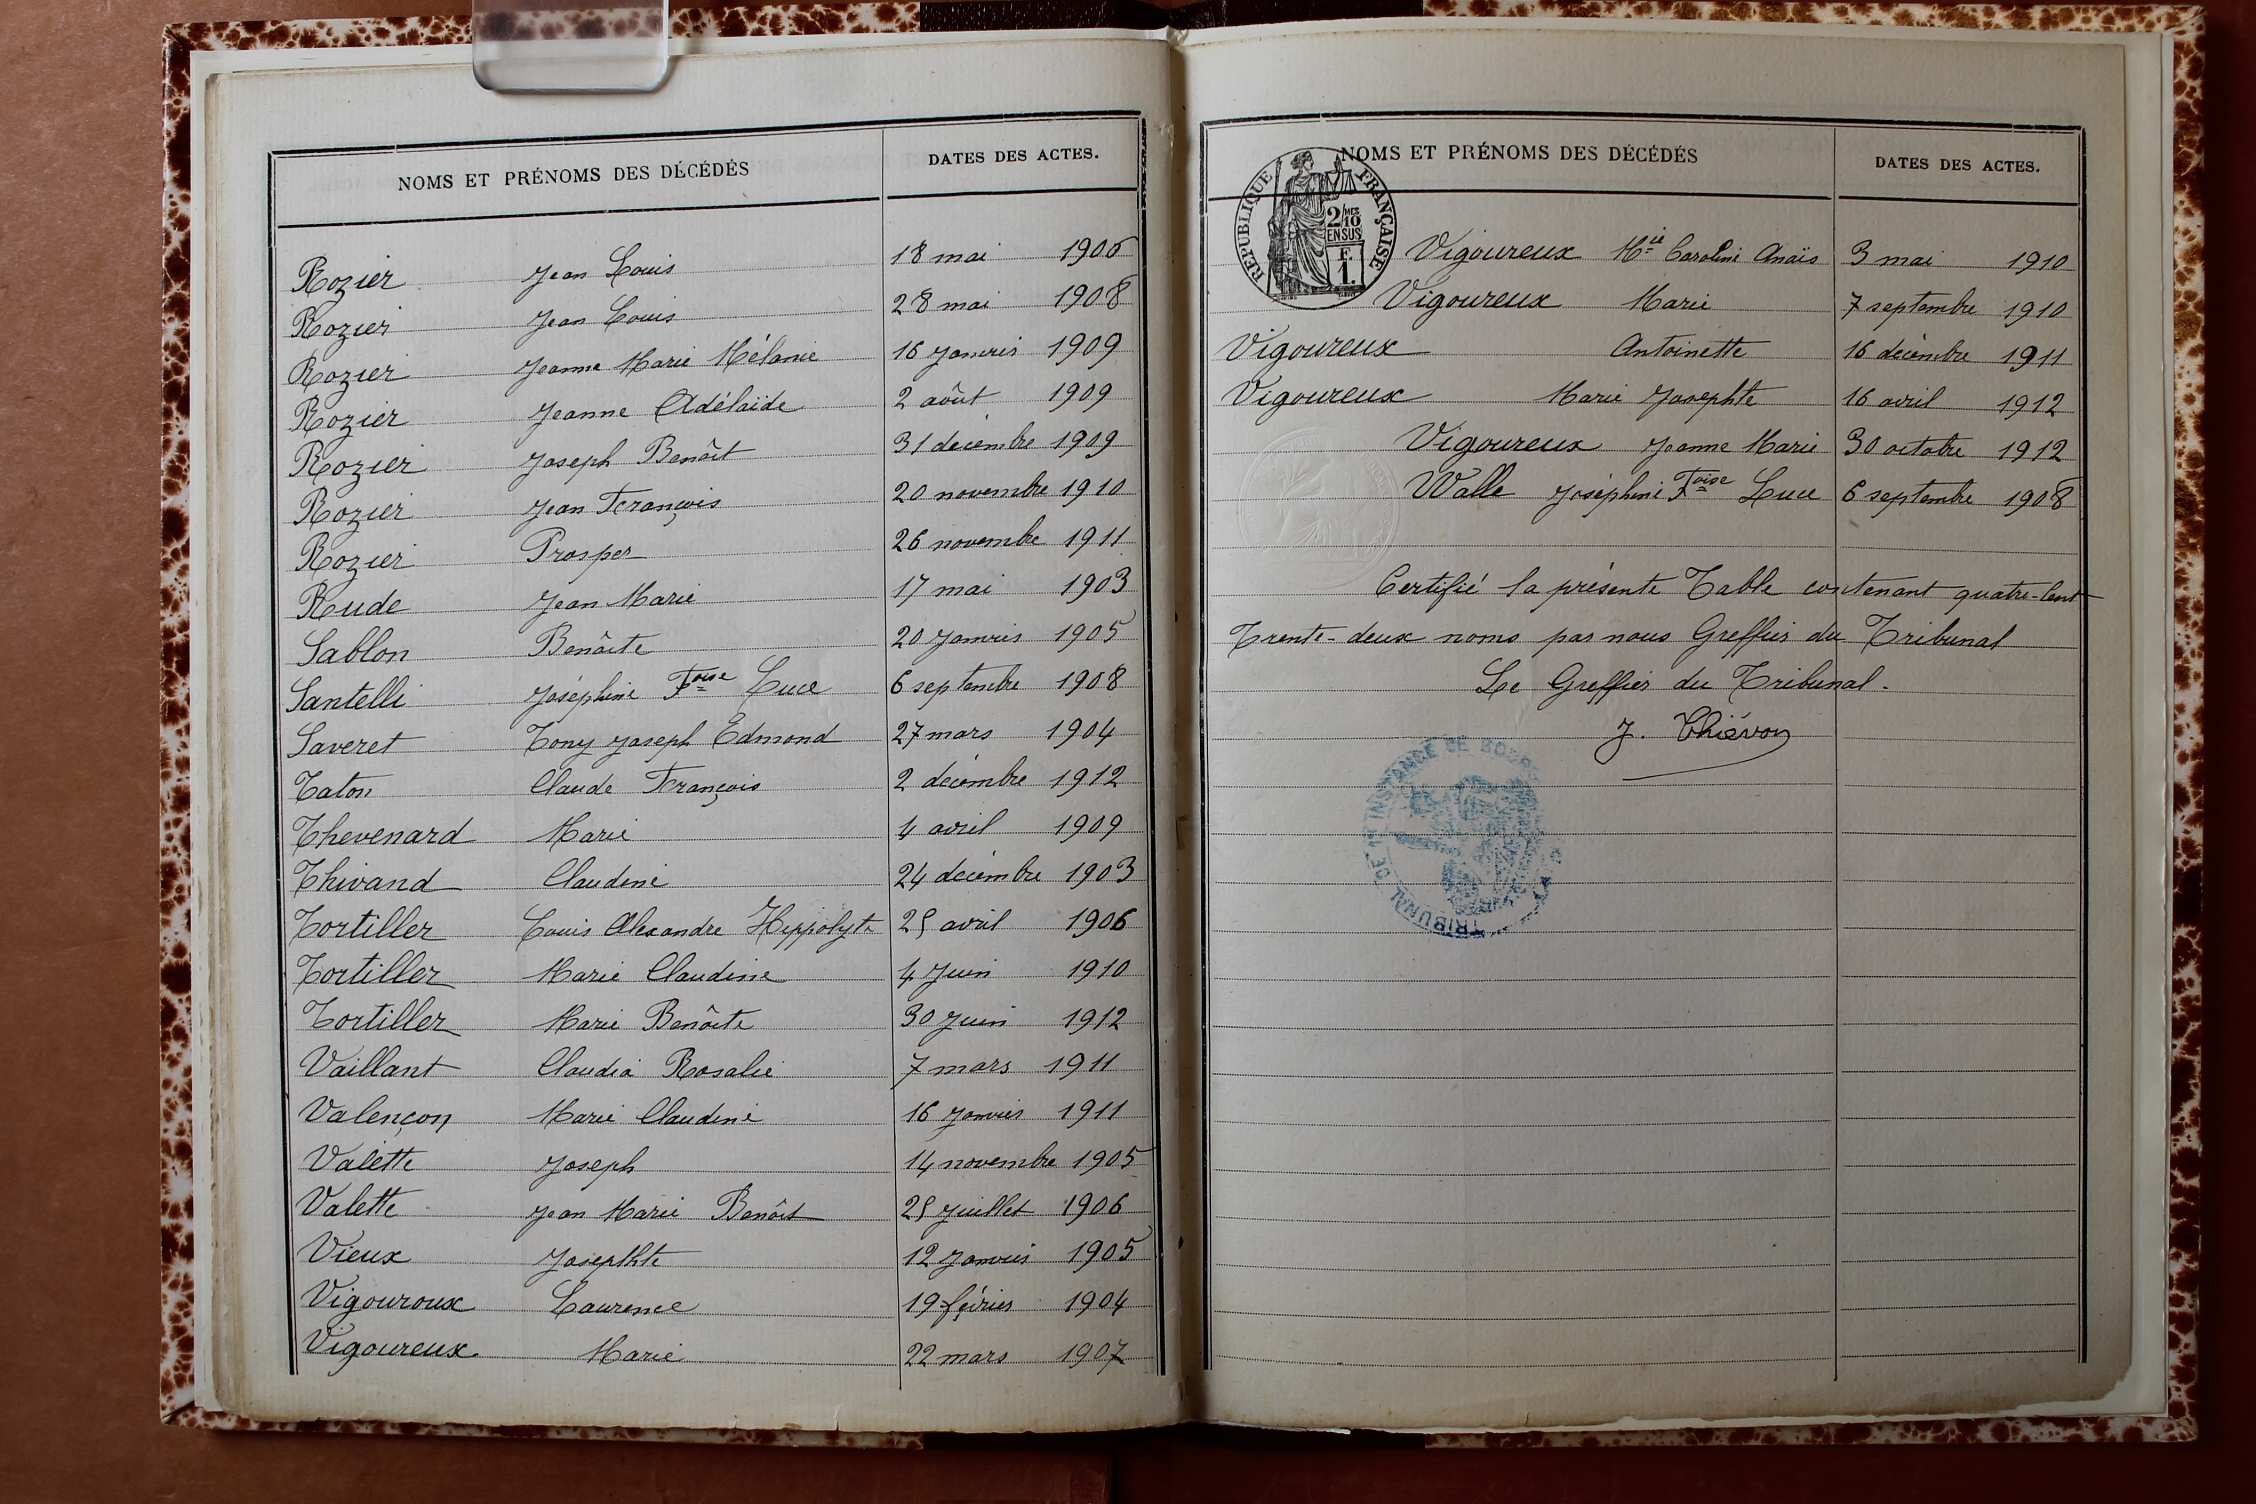 NOMS ET PRÉNOMS DES DÉCÉDÉS DATES DES ACTES.
Rozier Jean Louis 18 mai 1906
Rozier Jean Louis 28 mai 1908
Rozier Jeanne Marie Mélanie 16 Janvier 1909
Rozier Jeanne Adélaïde 2 août 1909
Rozier Joseph Benoît 31 décembre 1909
Rozier Jean François 20 novembre 1910
Rozier Prosper 26 novembre 1911
Rude Jean Marie 17 mai 1903
Sablon Benôite 20 Janvier 1905
Santelli Joséphine Foise Luce 6 septembre 1908
Saveret Tony Joseph Edmond 27 mars 1904
Taton Claude François 2 décembre 1912
Thevenard Marie 4 avril 1909
Thivand Claudine 24 décembre 1903
Tortiller Louis Alexandre Hippolyte 25 avril 1906
Tortiller Marie Claudine 4 Juin 1910
Tortiller Marie Benôite 30 Juin 1912
Vaillant Claudia Rosalie 7 mars 1911
Valençon Marie Claudine 16 Janvier 1911
Valette Joseph 14 novembre 1905
Valette Jean Marie Benôit 25 Juillet 1906
Vieux Josephte 12 Janvier 1905
Vigouroux Laurence 19 février 1904
Vigoureux Marie 22 mars 1907
NOMS ET PRÉNOMS DES DÉCÉDÉS DATES DES ACTES.
RÉPUBLIQUE FRANÇAISE
2/10 MES
EN SUS
F.
1.
Vigoureux Mie Caroline Anaïs 3 mai 1910
Vigoureux Marie 7 septembre 1910
Vigoureux Antoinette 16 décembre 1911
Vigoureux Marie Josephte 16 avril 1912
Vigoureux Jeanne Marie 30 octobre 1912
Walle Joséphine Foise Luce 6 septembre 1908
Certifié la présente Table contenant quatre-cent
Trente-deux noms par nous Greffier du Tribunal
Le Greffier du Tribunal.
J. Thiévon
TRIBUNAL DE 1re INSTANCE DE